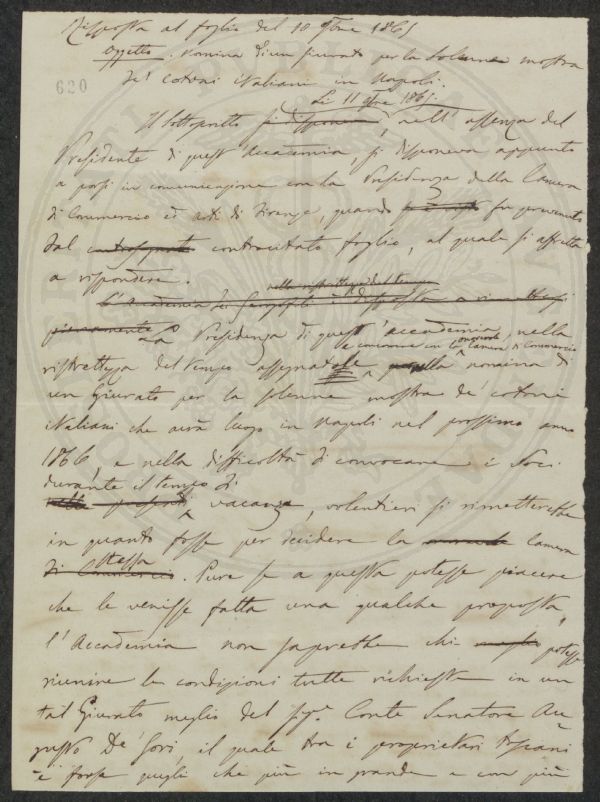 Risposta al foglio del 10 9bre 1865
Oggetto. Nomina d'un Giurato per la Solenne mostra
de' cotoni italiani in Napoli.
620
Li 11 9bre 1865.
Il Sottoscritto si disponeva, nell' assenza del
Presidente di quest' Accademia, si disponeva appunto
a porsi in comunicazione con la Presidenza della Camera
di Commercio ed arti di Firenze, quando fu prevenuto
dal controsegnato controcitato foglio, al quale si affretta
a rispondere.
nella ristrettezza del tempo
L'Accademia dei Georgofili disposta a rimettersi
pienamente La Presidenza di quest' accademia, nella
la comune on. Camera di Commercio
ristrettezza del tempo assegnatole a quella nomina di
un Giurato per la solenne mostra de' cotoni
italiani che avrà luogo in Napoli nel prossimo anno
1866, e nella difficoltà di convocare i Soci
durante il tempo di
vacanze, volentieri si rimetterebbe
in quanto fosse per decidere la Camera
stessa
di Commercio. Pure se a questa potesse piacere
che le venisse fatta una qualche proposta,
l'Accademia non saprebbe chi meglio potesse
riunire le condizioni tutte richieste in un
tal Giurato meglio del Sigr. Conte Senatore Au-
gusto De' Gori, il quale tra i proprietari toscani
è forse quegli che più in grande e con più